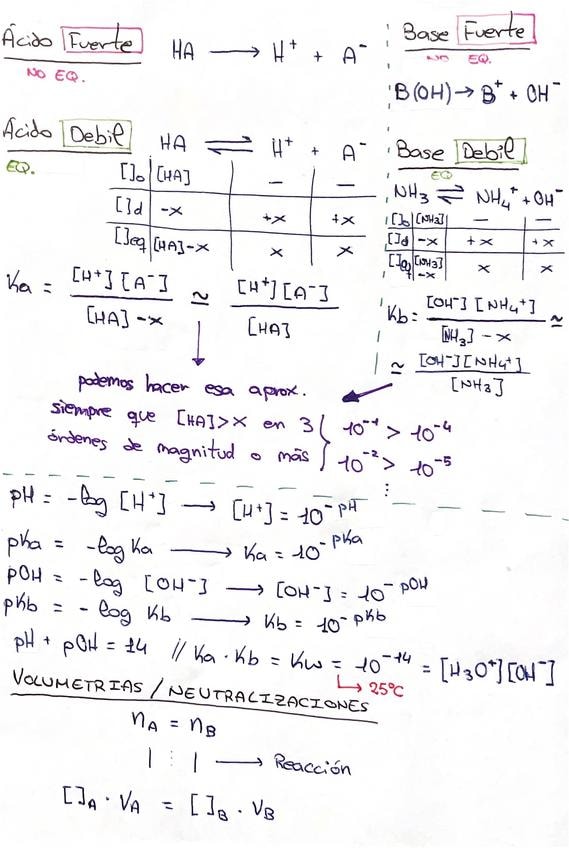 Ácido Fuerte
NO EQ.
HA ⟶ H⁺ + A⁻
Base Fuerte
NO EQ.
B(OH) → B⁺ + OH⁻
Ácido Debil
EQ.
HA ⇌ H⁺ + A⁻
[]₀ [HA] — —
[]d -x +x +x
[]eq [HA]-x x x
Ka = [H⁺][A⁻] / [HA]-x ≃ [H⁺][A⁻] / [HA]
Base Debil
EQ
NH₃ ⇌ NH₄⁺ + OH⁻
[]₀ [NH₃] — —
[]d -x +x +x
[]eq [NH₃]-x x x
Kb = [OH⁻][NH₄⁺] / [NH₃]-x ≃
≃ [OH⁻][NH₄⁺] / [NH₃]
podemos hacer esa aprox.
siempre que [HA]>x en 3
órdenes de magnitud o más
10⁻¹ > 10⁻⁴
10⁻² > 10⁻⁵
⋮
pH = -log [H⁺] ⟶ [H⁺] = 10⁻ᵖᴴ
pKa = -log Ka ⟶ Ka = 10^-pKa
pOH = -log [OH⁻] ⟶ [OH⁻] = 10^-pOH
pKb = -log Kb ⟶ Kb = 10^-pKb
pH + pOH = 14 // Ka · Kb = Kw = 10⁻¹⁴ = [H₃O⁺][OH⁻]
↳ 25ºC
VOLUMETRIAS / NEUTRALIZACIONES
nA = nB
| ⋮ | ⟶ Reacción
[]A · VA = []B · VB